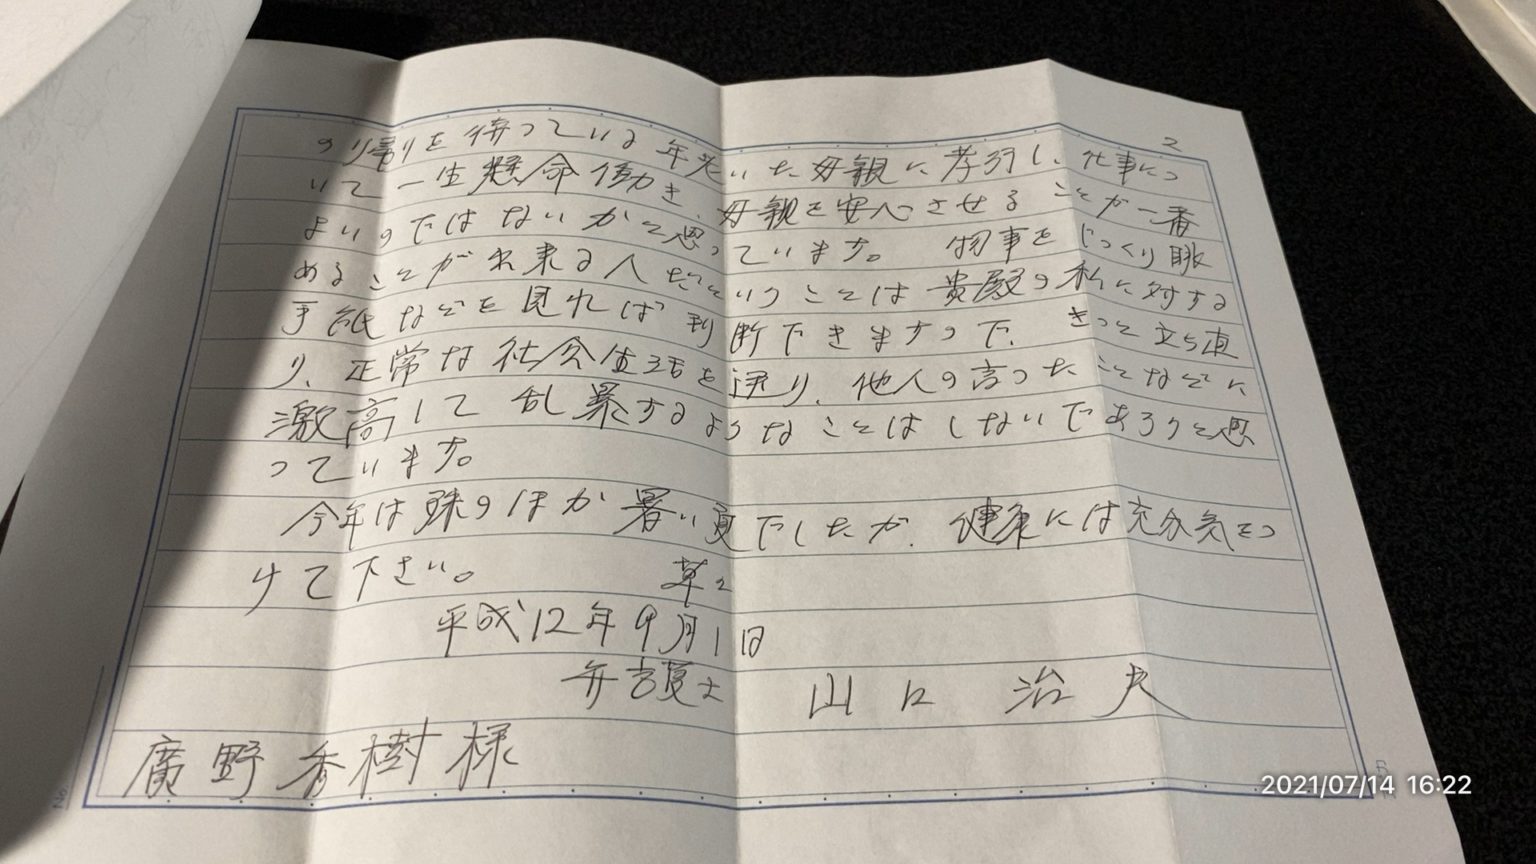 2
の帰りを待っている年老いた母親に孝行し、仕事につ
いて一生懸命働き、母親を安心させることが一番
よいのではないかと思っています。物事をじっくり眺
めることが出来る人だということは貴殿の私に対する
手紙などを見れば判断できますので、きっと立ち直
り、正常な社会生活を送り、他人の言ったことなどに
激高して乱暴するようなことはしないであろうと思
っています。
今年は殊のほか暑い夏でしたが、健康には充分気をつ
けて下さい。 草々
平成12年9月1日
弁護士 山口治夫
廣野秀樹様
No.
2021/07/14 16:22